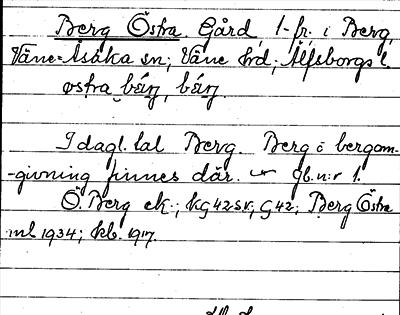 Berg Östra. Gård, 1-fr. i Berg,
Väne-Åsaka sn; Väne hd; Älfsborgs l.
østra bæ̀rj, bærj.
I dagl. tal Berg. Berg o bergom-
-givning finnes där. Jb. n:r 1.
Ö. Berg ek.; KG 42 SV; G 42; Berg Östra
ml 1934; kb. 1917.